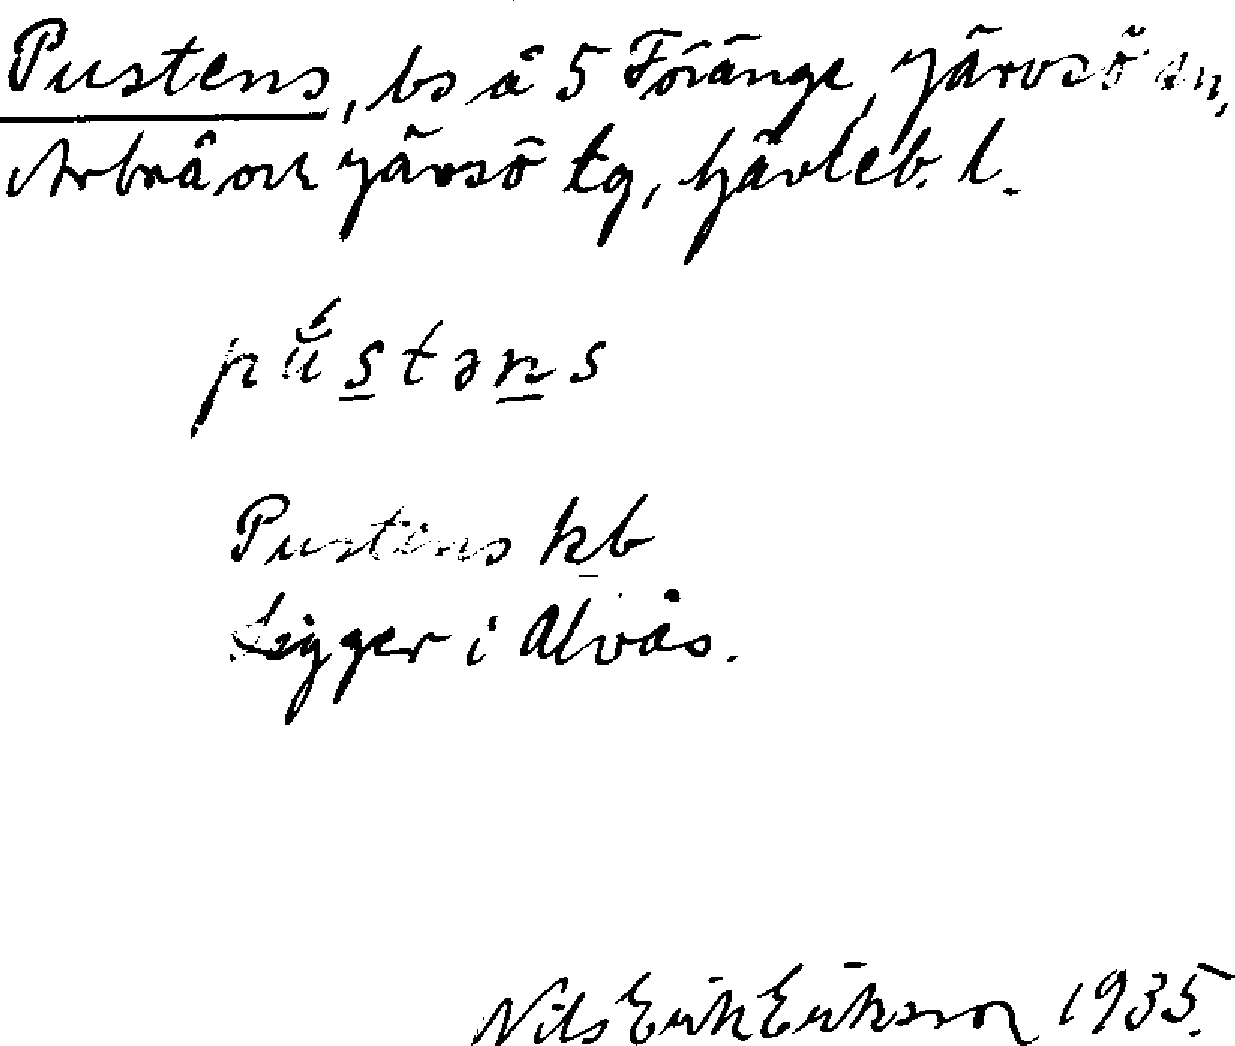 Pustens, bs å 5 Föränge, Järvsö sn,
Arbrå och Järvsö tg, Gävleb. l.
pŭ́s̲tən̲s
Pustens kb
Ligger i Alvås.
Nils Erik Eriksson 1935.